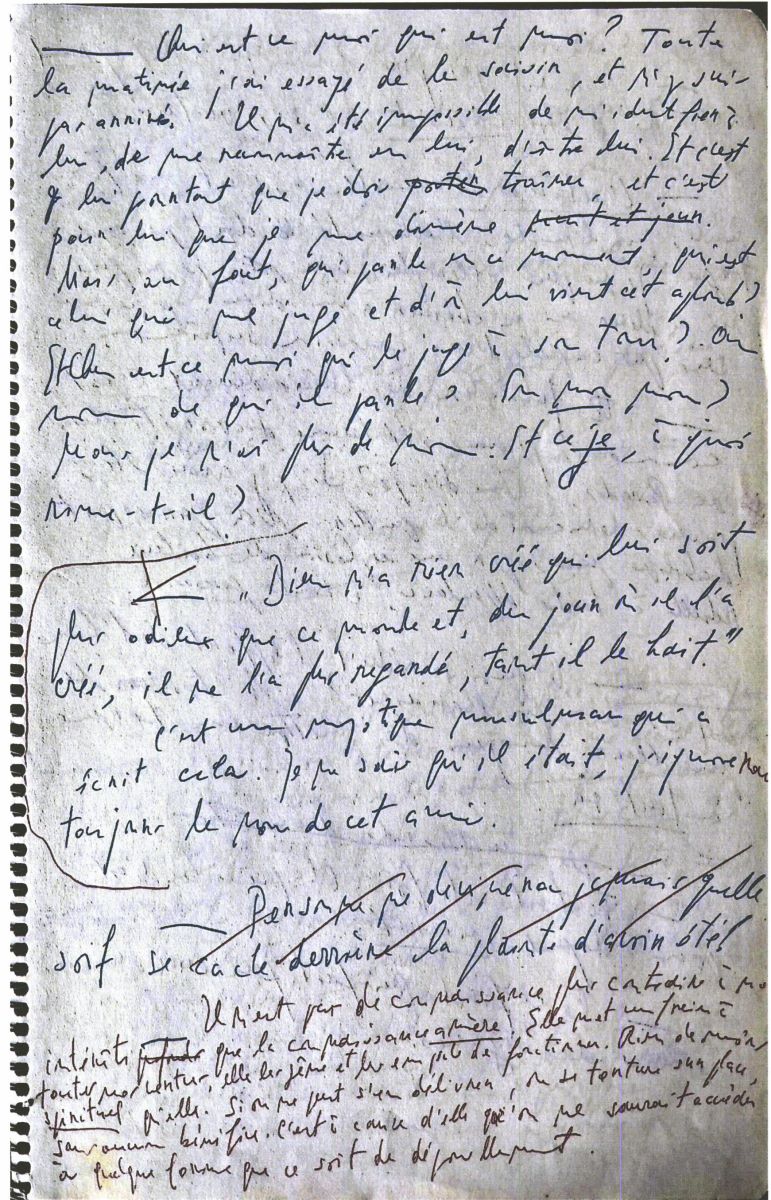 — Qui est ce moi qui est moi? Toute
la matinée j'ai essayé de le saisir, et n'y suis
pas arrivé. Il m'a été impossible de m'identifier à
lui, de me reconnaître en lui, d'être lui. Et c'est
lui pourtant que je dois porter traîner, et c'est
pour lui que je me démène
Mais, au fait, qui parle en ce moment, qui est
celui qui me juge et d'où lui vient cet aplomb?
Et est ce moi qui le juge à son tour? Au
nom de qui il parle? En mon nom?
Mais je n'ai plus de nom. Et ce je, à quoi
rime-t-il?
— "Dieu n'a rien créé qui lui soit
plus odieux que ce monde et, du jour où il l'a
créé, il ne l'a plus regardé, tant il le hait."
C'est un mystique musulman qui a
écrit cela. Je ne sais qui il était, j'ignorerai
toujours le nom de cet ami.
— Personne ne devinera jamais quelle
soif se cache derrière la plainte d'avoir été!
Il n'est pas de connaissance plus contraire à nos
intérêts que la connaissance amère. Elle met un frein à
toutes nos , elle les gêne et les empêche de fonctionner. Rien de moins
spirituel qu'elle. Si on ne peut s'en délivrer, on se torture sur place,
sans aucun bénéfice. C'est à cause d'elle qu'on ne saurait accéder
à quelque forme que ce soit de dépouillement.